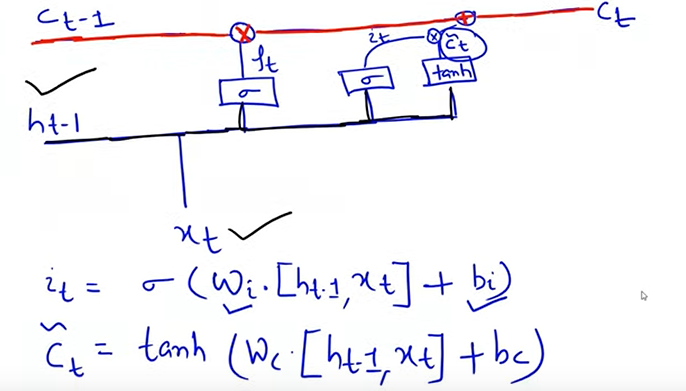 C_{t-1} × + C_t
i_t × C̃_t
f_t
σ σ tanh
h_{t-1}
x_t
i_t = σ (W_i · [h_{t-1}, x_t] + b_i)
C̃_t = tanh (W_c · [h_{t-1}, x_t] + b_c)